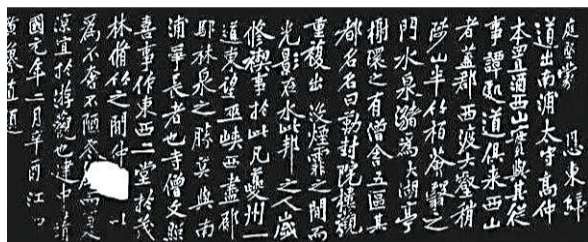 庭堅蒙 恩東歸
道出南浦太守高仲
本置酒西山實與其從
事譚處道俱來西山
者蓋郡西渡大壑稍
陟山半竹柏薈翳之
門水泉瀦為大湖亭
榭環之有僧舍五區其
都名名曰勒封院樓觀
重複出沒煙霏之間而
光影在水此邦之人歲
修禊事於此凡夔州一
道東望巫峽西盡郁
鄢林泉之勝莫與南
浦爭長者也寺僧文照
喜事作東西二堂於茂
林脩竹之間仲 以
為不奢不陋冬 而夏
涼宜於游觀也建中靖
國元年二月辛酉江
黃 題